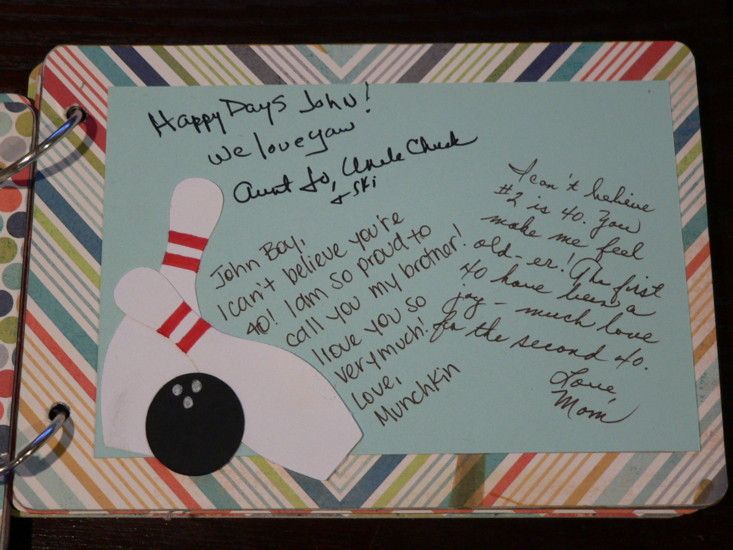 Happy Days John!
We love yaw
Aunt Jo, Uncle Chuck
+ Ski
John Boy,
I can't believe you're
40! I am so proud to
call you my brother!
I love you so
very much!
Love,
Munchkin
I can't believe
#2 is 40. You
make me feel
old-er! The first
40 have been a
joy - much love
for the second 40.
Love,
Mom